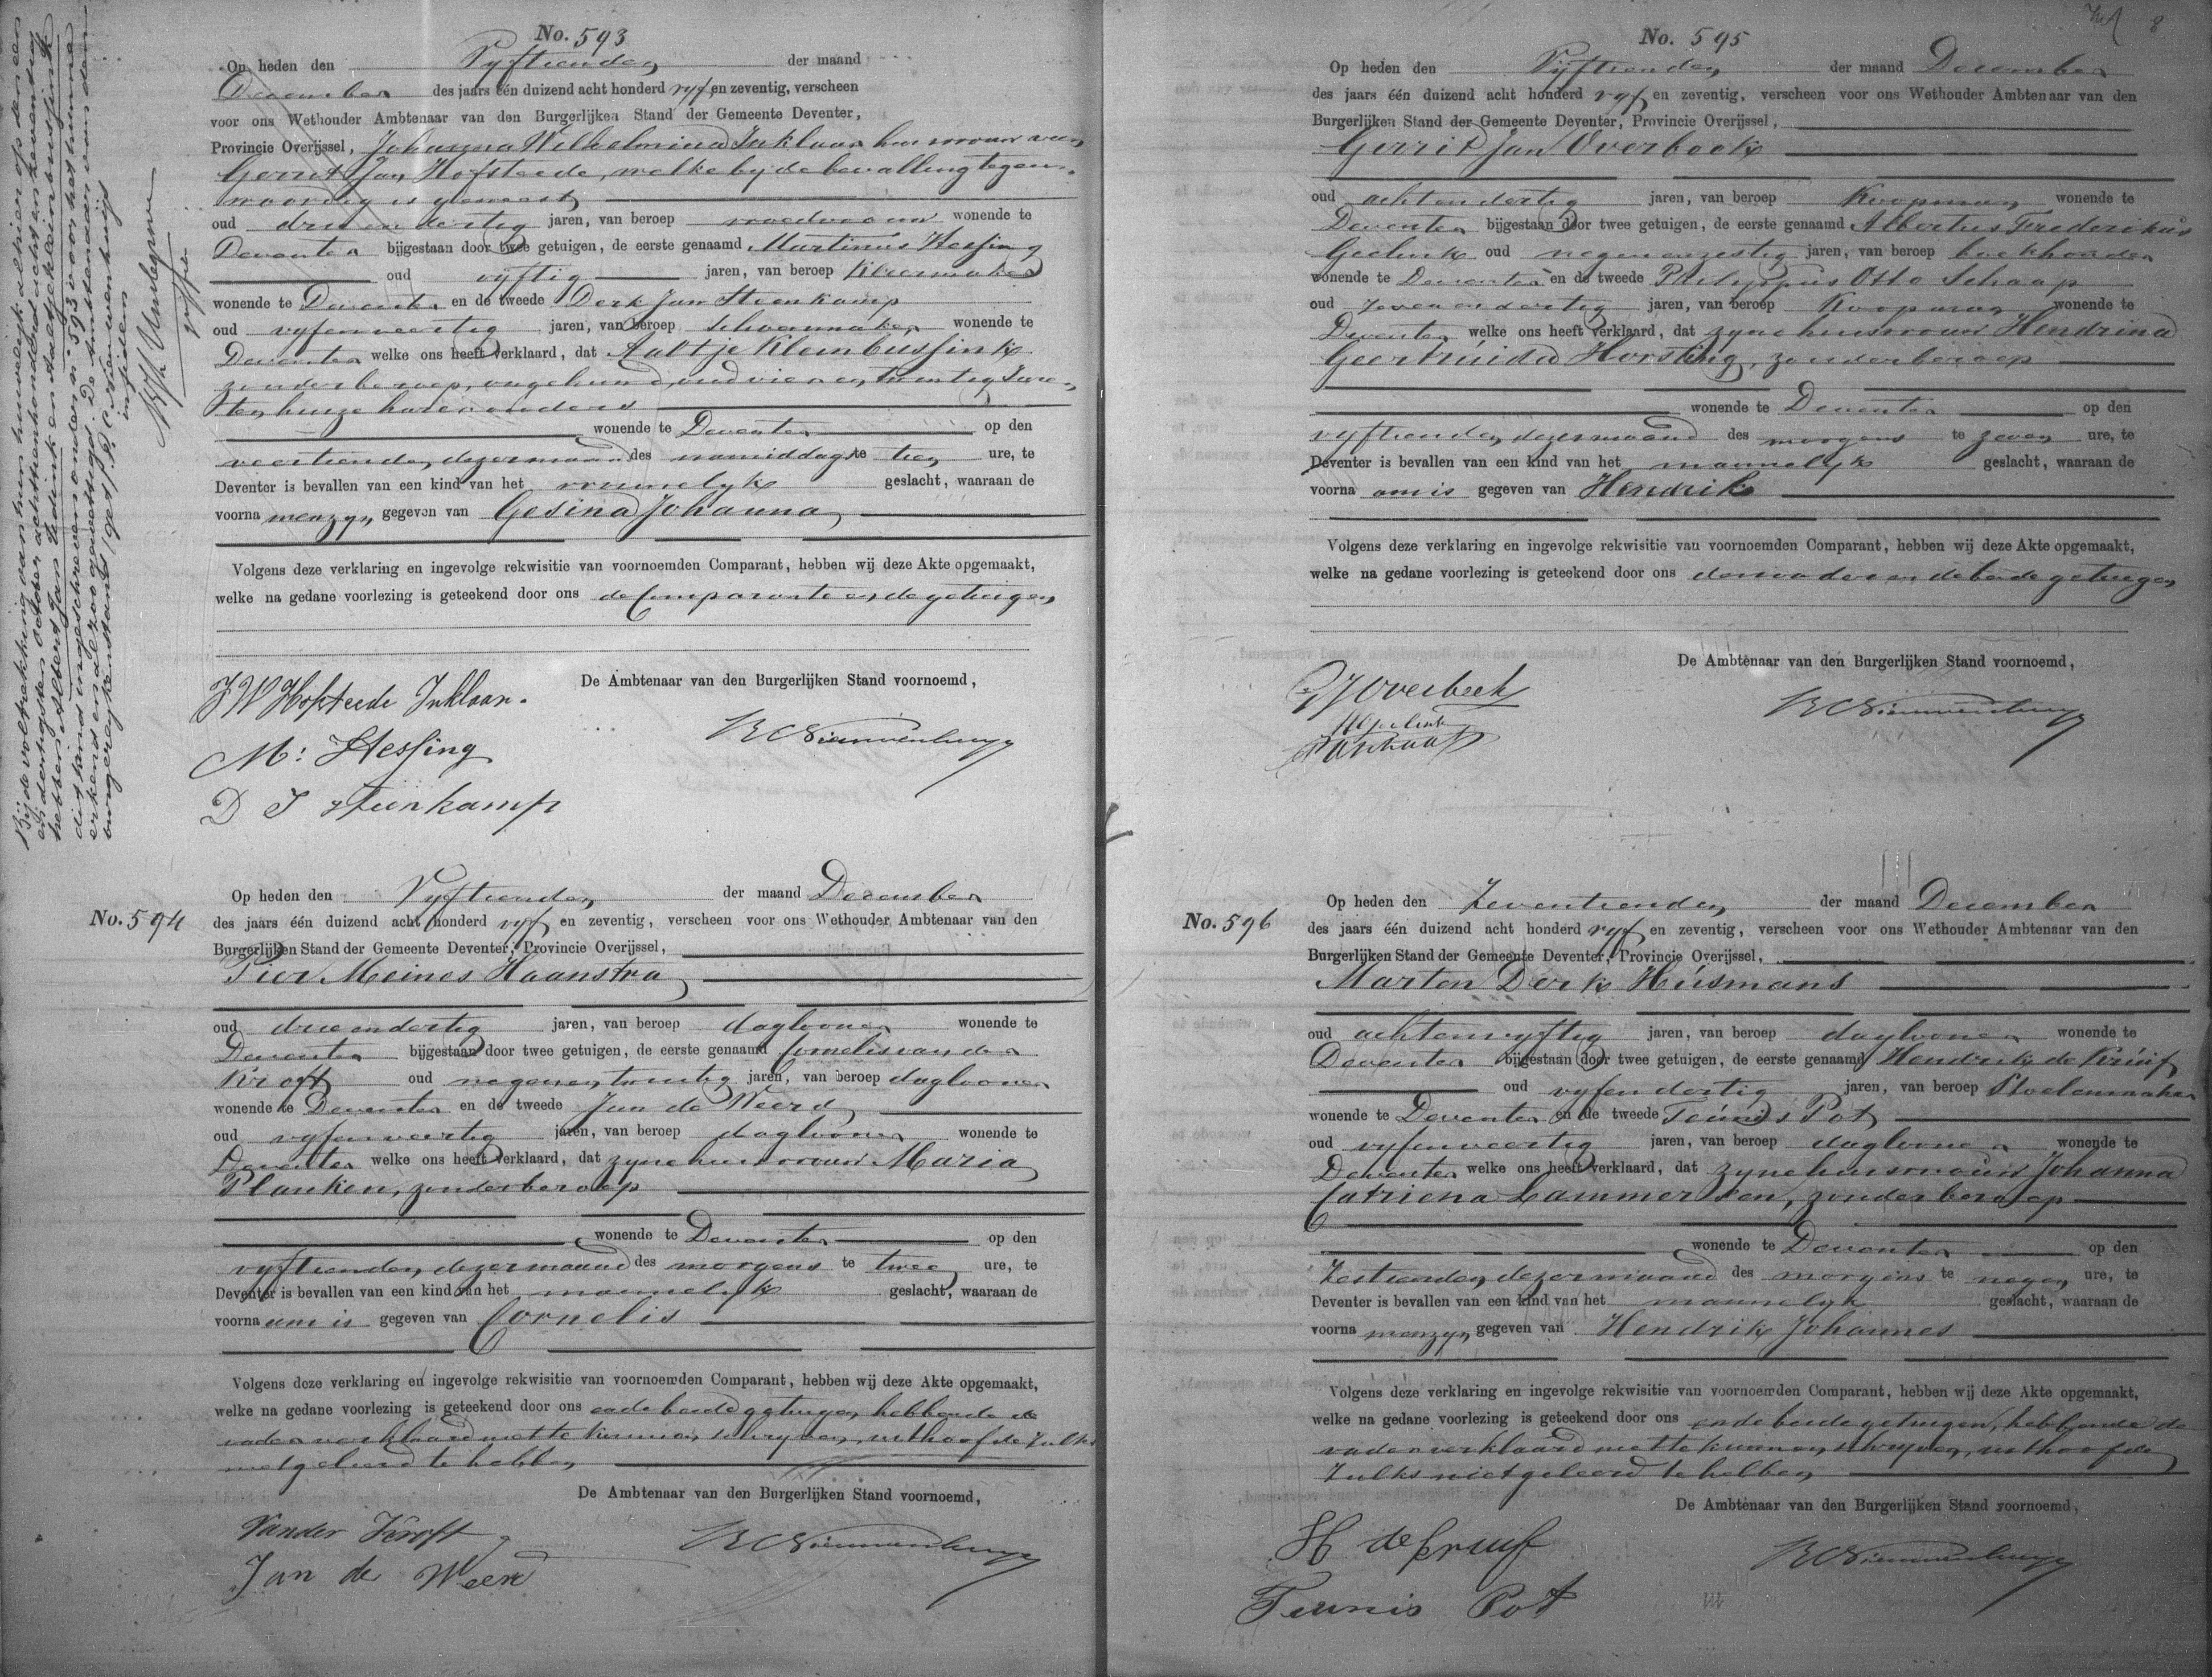 Bij de voltrekking van hun huwelijk alhier op den een
en dertigsten October achttienhonderd acht en zeventig
hebben Albert Jans Ludink en Aaltje Kleinbussink
dit kind ingeschreven onder n° 593 voor het hunne
erkend en alzoo gewettigd. De Ambtenaar van den
burgerlijken stand (get.) R. C. Nieuwenhuijs
No. 593
Op heden den Vyftienden der maand
December des jaars één duizend acht honderd vyf en zeventig, verscheen
voor ons Wethouder Ambtenaar van den Burgerlijken Stand der Gemeente Deventer,
Provincie Overijssel, Johanna Wilhelmina Inklaar huisvrouw van
Gerrit Jan Hofsteede, welke by de bevalling tegen-
woordig is geweest
oud drie en dertig jaren, van beroep vroedvrouw wonende te
Deventer bijgestaan door twee getuigen, de eerste genaamd Martinus Hessing
oud vyftig jaren, van beroep Kleermaker
wonende te Deventer en de tweede Derk Jan Steenkamp
oud vyfenveertig jaren, van beroep Schoenmaker wonende te
Deventer welke ons heeft verklaard, dat Aaltje Kleinbussink
zonder beroep, ongehuwd, oud vier en twintig Jaren,
ten huize harer ouders
wonende te Deventer op den
veertienden dezer maand des namiddags te tien ure, te
Deventer is bevallen van een kind van het vrouwelyk geslacht, waaraan de
voorna men zyn gegeven van Gesina Johanna
Volgens deze verklaring en ingevolge rekwisitie van voornoemden Comparant, hebben wij deze Akte opgemaakt,
welke na gedane voorlezing is geteekend door ons de Comparante en de getuigen
De Ambtenaar van den Burgerlijken Stand voornoemd,
J W Hofsteede Inklaar.
RC Nieuwenhuys
M: Hessing
D J Steenkamp
No. 594
Op heden den Vyftienden der maand December
des jaars één duizend acht honderd vyf en zeventig, verscheen voor ons Wethouder Ambtenaar van den
Burgerlijken Stand der Gemeente Deventer, Provincie Overijssel,
Pier Meines Haanstra
oud drie en dertig jaren, van beroep daglooner wonende te
Deventer bijgestaan door twee getuigen, de eerste genaamd Cornelis van der
Kroft oud negen en twintig jaren, van beroep daglooner
wonende te Deventer en de tweede Jan de Weerd
oud vyfenveertig jaren, van beroep daglooner wonende te
Deventer welke ons heeft verklaard, dat zyne huisvrouw Maria
Planken, zonder beroep
wonende te Deventer op den
vyftienden dezer maand des morgens te twee ure, te
Deventer is bevallen van een kind van het mannelyk geslacht, waaraan de
voorna am is gegeven van Cornelis
Volgens deze verklaring en ingevolge rekwisitie van voornoemden Comparant, hebben wij deze Akte opgemaakt,
welke na gedane voorlezing is geteekend door ons en de beide getuigen, hebbende de
vader verklaard niet te kunnen schryven, uit hoofde zulks
niet geleerd te hebben
De Ambtenaar van den Burgerlijken Stand voornoemd,
Vander Kroft
RC Nieuwenhuys
Jan de Weerd
No. 595
Op heden den Vyftienden der maand December
des jaars één duizend acht honderd vyf en zeventig, verscheen voor ons Wethouder Ambtenaar van den
Burgerlijken Stand der Gemeente Deventer, Provincie Overijssel,
Gerrit Jan Overbeek
oud achtendertig jaren, van beroep Koopman wonende te
Deventer bijgestaan door twee getuigen, de eerste genaamd Albertus Frederikus
Geelink oud negenenzestig jaren, van beroep boekhouder
wonende te Deventer en de tweede Philippus Otto Schaap
oud zeven en dertig jaren, van beroep Koopman wonende te
Deventer welke ons heeft verklaard, dat zyne huisvrouw Hendrina
Geertruida Horsting, zonder beroep
wonende te Deventer op den
vyftienden dezer maand des morgens te zeven ure, te
Deventer is bevallen van een kind van het mannelyk geslacht, waaraan de
voorna am is gegeven van Hendrik
Volgens deze verklaring en ingevolge rekwisitie van voornoemden Comparant, hebben wij deze Akte opgemaakt,
welke na gedane voorlezing is geteekend door ons den vader en de beide getuigen
De Ambtenaar van den Burgerlijken Stand voornoemd,
GJ Overbeek
RC Nieuwenhuys
No. 596
Op heden den Zeventienden der maand December
des jaars één duizend acht honderd vyf en zeventig, verscheen voor ons Wethouder Ambtenaar van den
Burgerlijken Stand der Gemeente Deventer, Provincie Overijssel,
Marten Derk Húsmans
oud achtenvyftig jaren, van beroep daglooner wonende te
Deventer bijgestaan door twee getuigen, de eerste genaamd Hendrik de Krúif
oud vyfendertig jaren, van beroep Stoelenmaker
wonende te Deventer en de tweede Teúnis Pot
oud vyfenveertig jaren, van beroep daglooner wonende te
Deventer welke ons heeft verklaard, dat zyne huisvrouw Johanna
Catriena Lammersen, zonder beroep
wonende te Deventer op den
Zestienden dezer maand des morgens te negen ure, te
Deventer is bevallen van een kind van het mannelyk geslacht, waaraan de
voorna men zyn gegeven van Hendrik Johannes
Volgens deze verklaring en ingevolge rekwisitie van voornoemden Comparant, hebben wij deze Akte opgemaakt,
welke na gedane voorlezing is geteekend door ons en de beide getuigen, hebbende de
vader verklaard niet te kunnen schryven, uit hoofde
zulks niet geleerd te hebben
De Ambtenaar van den Burgerlijken Stand voornoemd,
H de Kruif
RC Nieuwenhuys
Teunis Pot